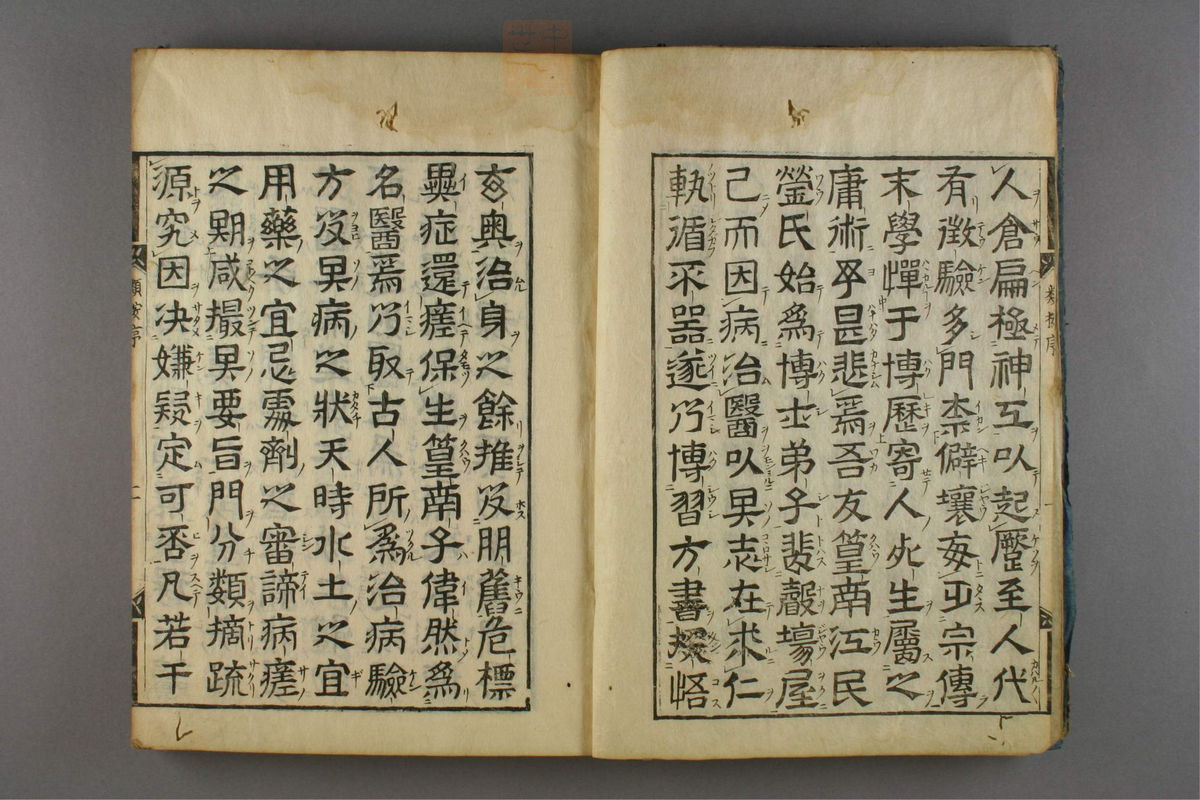 人倉扁極神工以起歷至人代
有徵驗多門柰僻壤每乏宗傳
末學憚于博歷寄人死生屬之
庸術卒甚悲焉吾友篁南江民
瑩氏始爲博士弟子蜚聲場屋
已而因病治醫以其志在求仁
執循采噐遂乃博習方書探悟
類按序
一
玄奥治身之餘推及朋舊危標
異症還瘥保生篁南子偉然爲
名醫焉乃取古人所爲治病驗
方及其病之狀天時水土之宜
用藥之宜忌處劑之審諦病瘥
之期咸撮其要旨門分類摘疏
源究因决嫌疑定可否凡若干
類按序
二